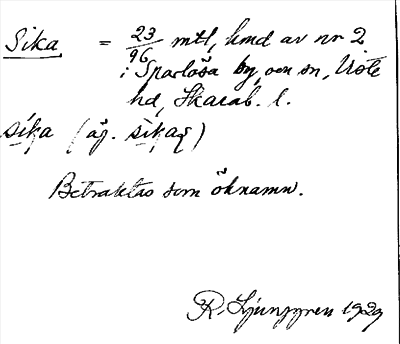 Sika = 23/96 mtl, hmd av nr 2
i Sparlösa by, ock sn, Viste
hd, Skarab. l.
sìka (äg. sìkaʀ)
Betraktas som öknamn.
R. Ljunggren 1929